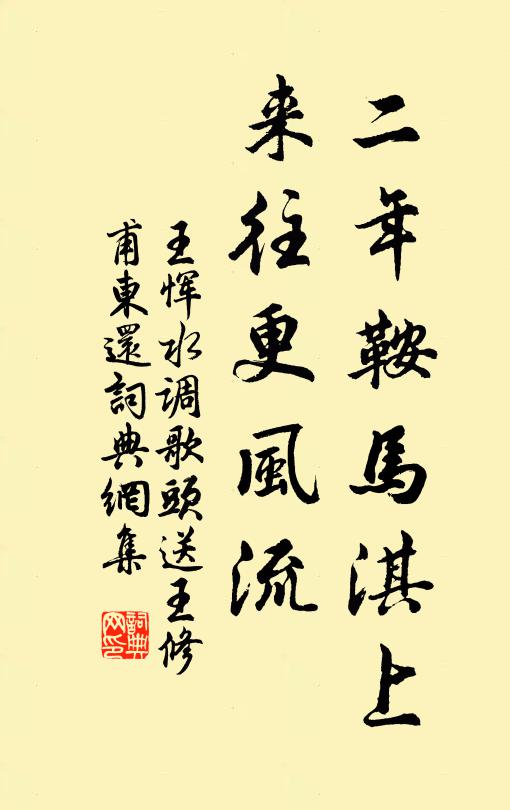 二年鞍馬淇上
来往更風流
王恽水调歌頭送王修
甫東還詞典網集
詞典
网印